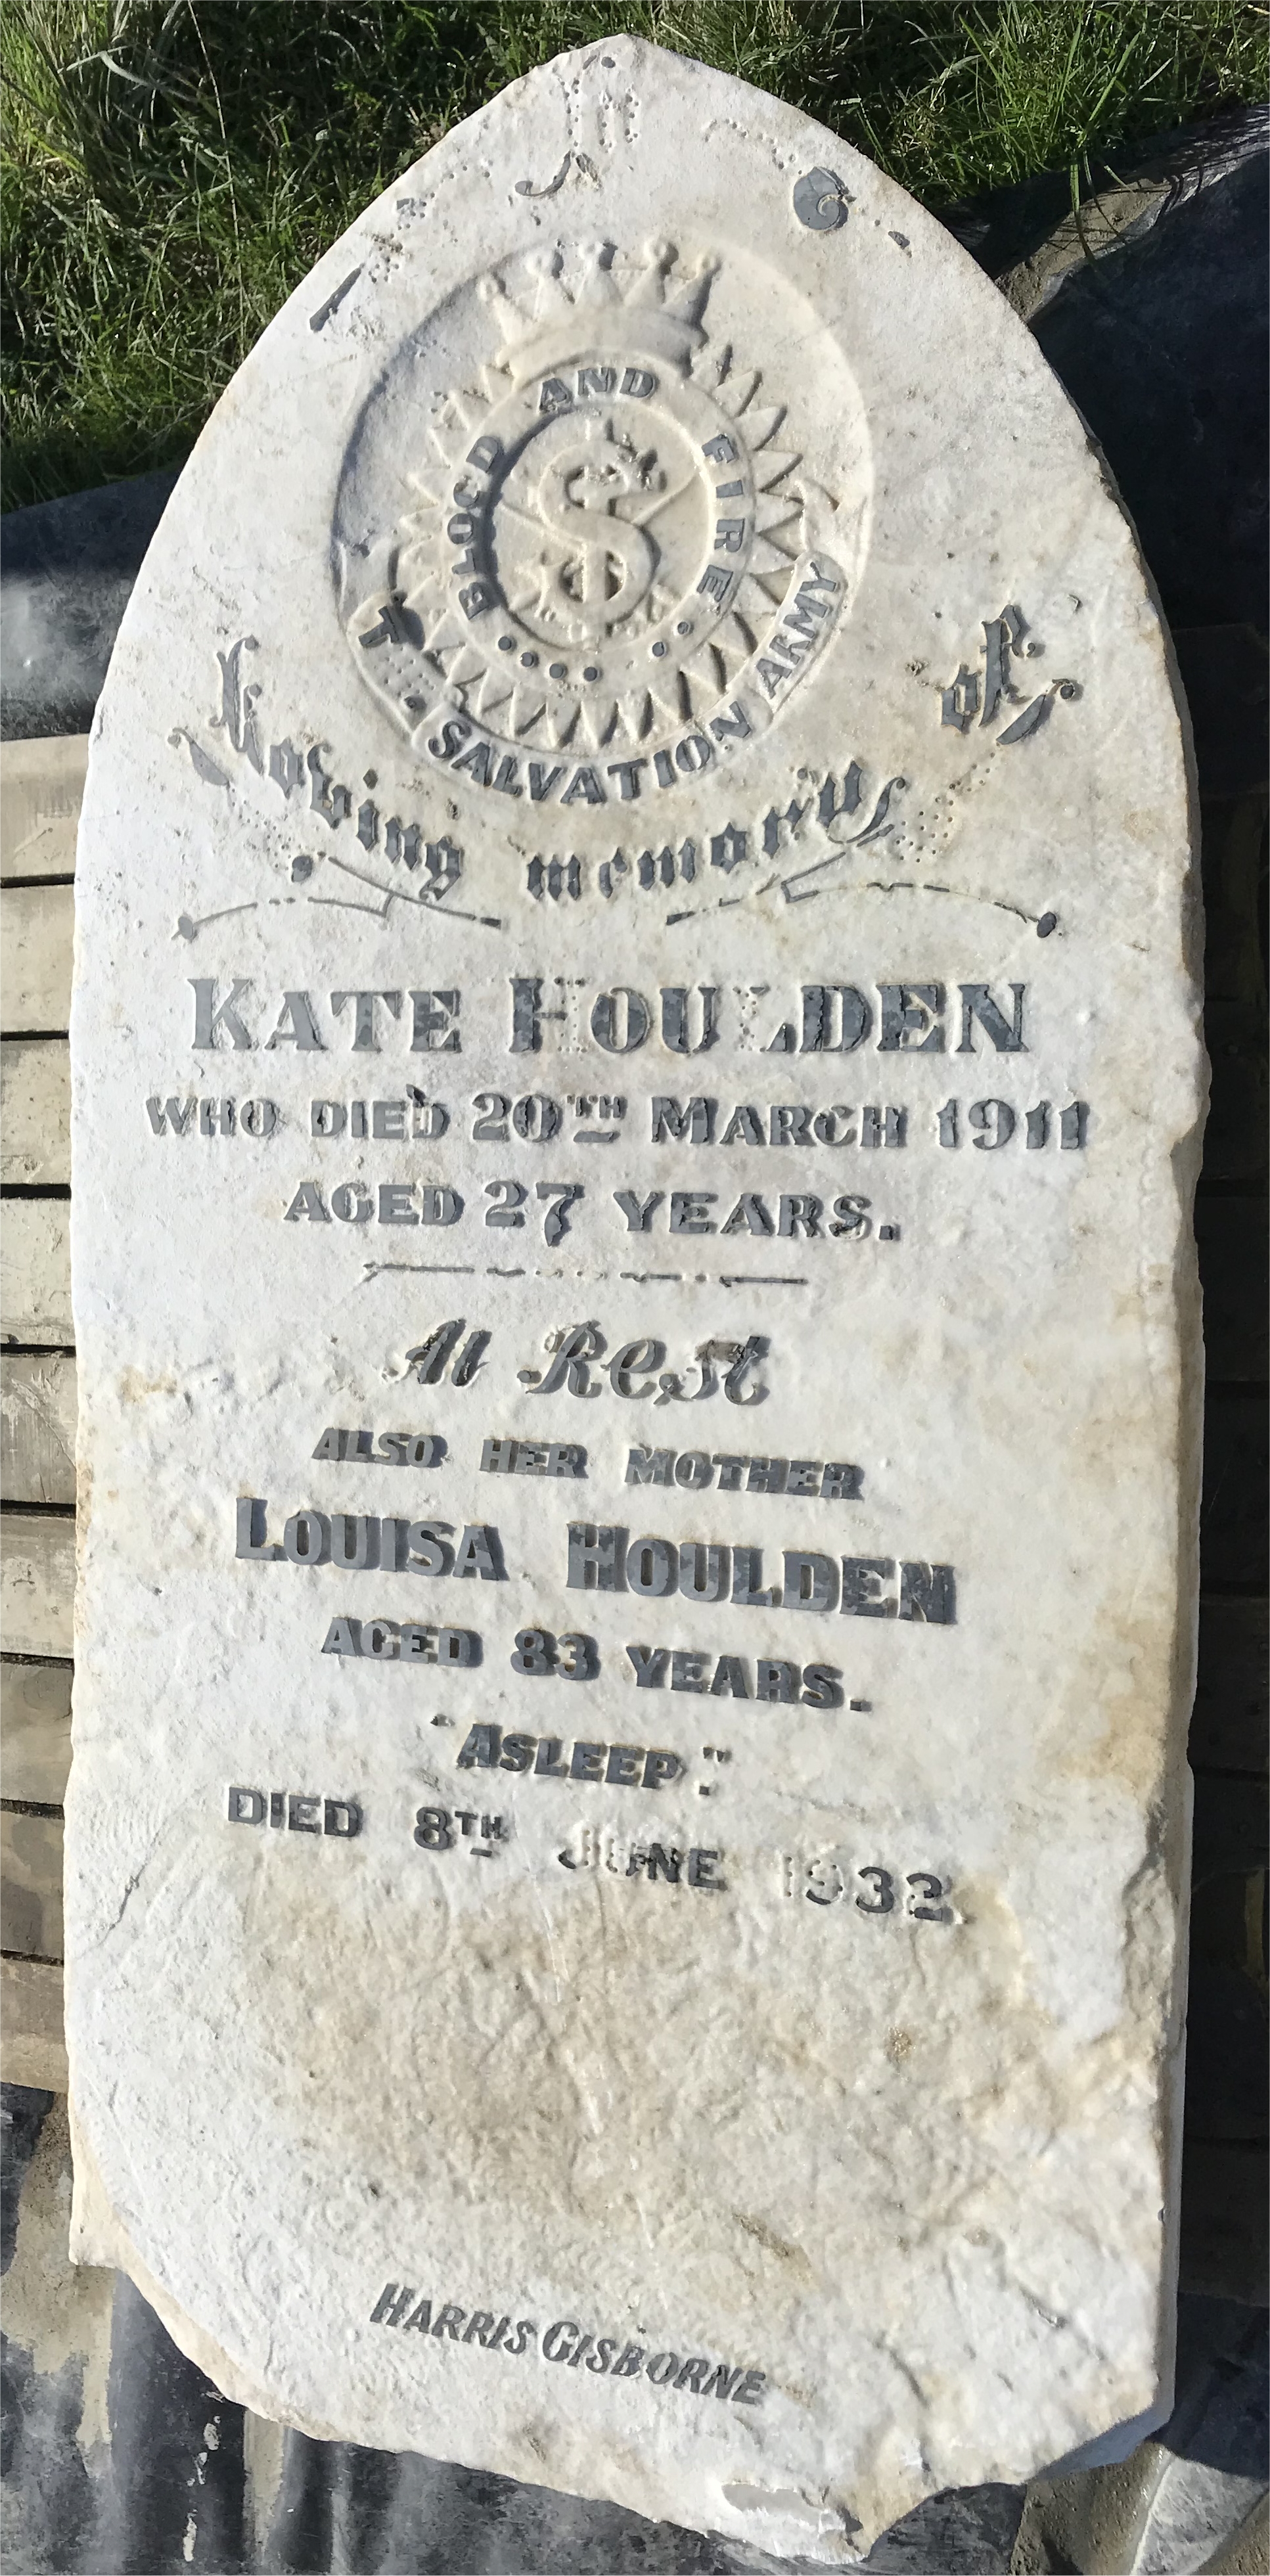 In
BLOOD AND FIRE
THE SALVATION ARMY
Loving memory of
KATE HOULDEN
WHO DIED 20TH MARCH 1911
AGED 27 YEARS.
At Rest
ALSO HER MOTHER
LOUISA HOULDEN
AGED 83 YEARS.
"ASLEEP."
DIED 8TH JUNE 1932
HARRIS GISBORNE